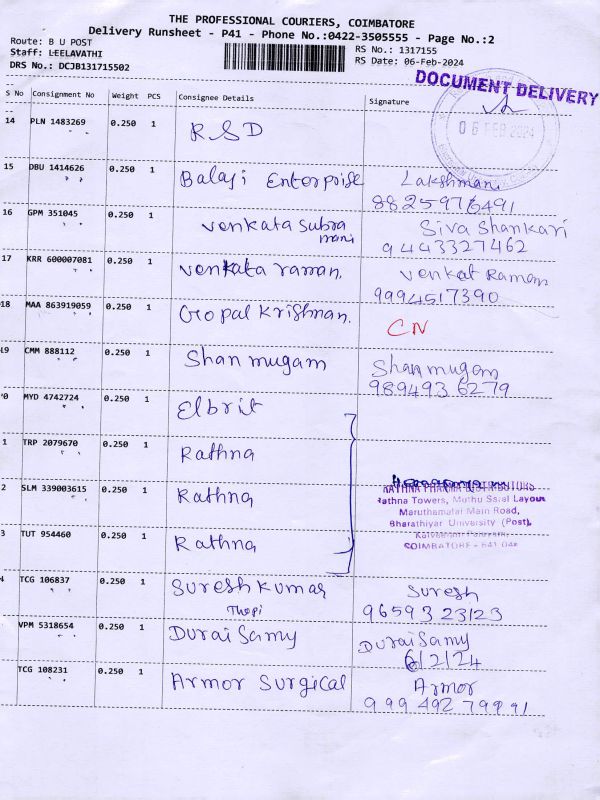 THE PROFESSIONAL COURIERS, COIMBATORE
Delivery Runsheet - P41 - Phone No.:0422-3505555 - Page No.:2
Route: B U POST
Staff: LEELAVATHI
DRS No.: DCJB131715502
RS No.: 1317155
RS Date: 06-Feb-2024
DOCUMENT DELIVERY
06 FEB 2024
S No Consignment No Weight PCS Consignee Details Signature
14 PLN 1483269 0.250 1 RSD
15 DBU 1414626 0.250 1 Balaji Enterprise Lakshmani
8825976491
16 GPM 351045 0.250 1 Venkata Subra Siva Shankari
mani 9443327462
17 KRR 600007081 0.250 1 Venkata raman. Venkat Raman
9994517390
18 MAA 863919059 0.250 1 Gopal Krishnan. CN
19 CMM 888112 0.250 1 Shanmugam Shanmugam
9894936279
0 MYD 4742724 0.250 1 Elbrit
1 TRP 2079670 0.250 1 Rathna
2 SLM 339003615 0.250 1 Rathna
RATHNA PHARMA DISTRIBUTORS
Rathna Towers, Muthu Saral Layout
Maruthamalai Main Road,
Bharathiyar University (Post),
COIMBATORE - 641 046
3 TUT 954460 0.250 1 Rathna
4 TCG 106837 0.250 1 Suresh Kumar Suresh
96593 23123
VPM 5318654 0.250 1 Durai Samy Durai Samy
6/2/24
TCG 108231 0.250 1 Armor Surgical Armor